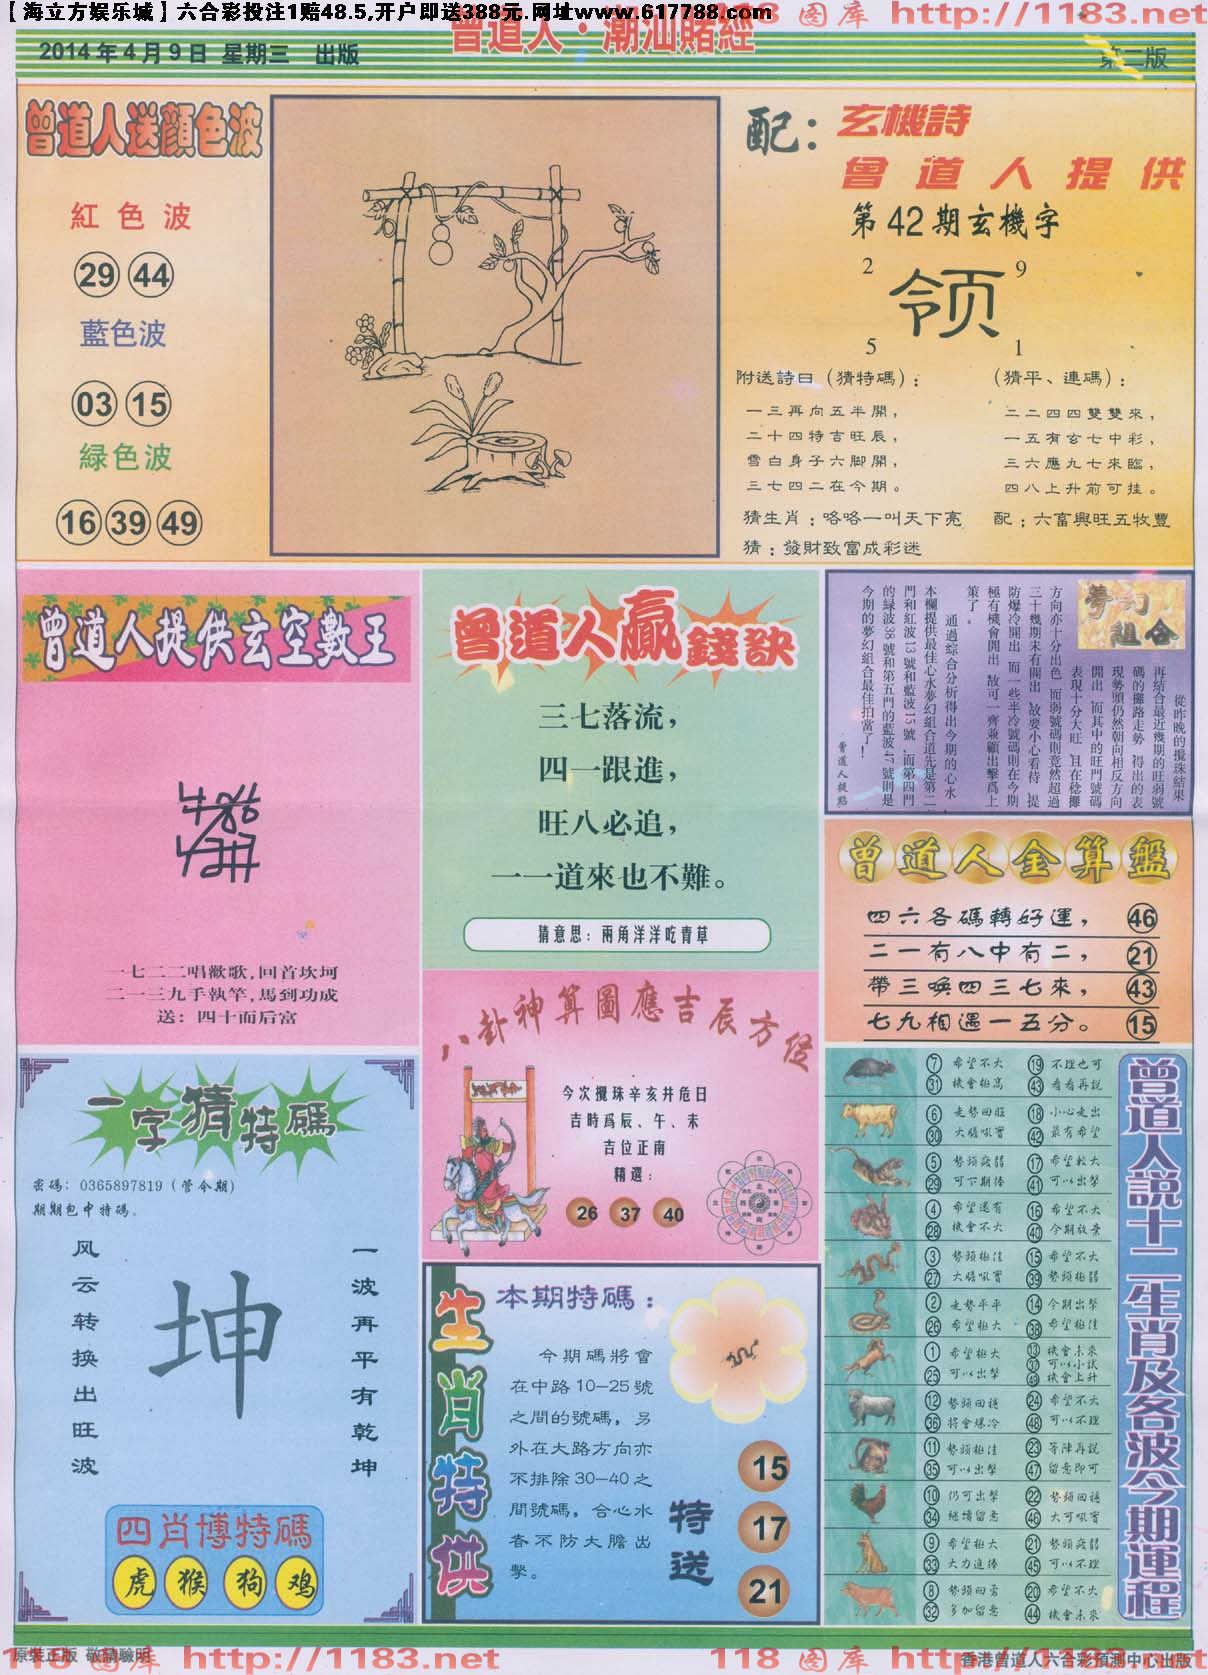 【海立方娱乐城】六合彩投注1赔48.5,开户即送388元.网址www.617788.com
118 图库 http://1183.net
曾道人·潮汕賭經
2014年4月9日 星期三 出版
第二版
曾道人送顏色波
紅色波
29 44
藍色波
03 15
緑色波
16 39 49
配：玄機詩
曾道人提供
第42期玄機字
2 9
领
5 1
附送詩曰（猜特碼）：
一三再向五半開，
二十四特吉旺辰，
雪白身子六脚開，
三七四二在今期。
猜生肖：咯咯一叫天下亮
猜：發財致富成彩迷
（猜平、連碼）：
二二四四雙雙來，
一五有玄七中彩，
三六應九七來臨，
四八上升前可挂。
配：六富興旺五牧豐
曾道人提供玄空數王
一七二二唱歡歌,回首坎坷
二一三九手執竿,馬到功成
送：四十而后富
曾道人贏錢訣
三七落流，
四一跟進，
旺八必追，
一一道來也不難。
猜意思：兩角洋洋吃青草
夢幻組合
從昨晚的攪珠結果
再結合最近幾期的旺弱號
碼的攤路走勢，得出的表
現勢頭仍然朝向相反方向
開出，而其中的旺門號碼
表現十分大旺，且在稔攤
方向亦十分出色，而弱號碼則竟然超過
三十幾期未有開出，故要小心看待，提
防爆冷開出，而一些半冷號碼則在今期
極有機會開出，故可一齊兼顧出擊爲上
策了。
通過綜合分析得出今期的心水，
本欄提供最佳心水夢幻組合道先是第二
門和紅波13號和藍波15號，而第四門
的緑波38號和第五門的藍波47號則是
今期的夢幻組合最佳拍當了！
曾道人提點
曾道人金算盤
四六各碼轉好運， 46
二一有八中有二， 21
帶三喚四三七來， 43
七九相遇一五分。 15
八卦神算圖應吉辰方位
今次攪珠辛亥井危日
吉時爲辰、午、未
吉位正南
精選：
26 37 40
一字猜特碼
密碼：0365897819（管今期）
期期包中特碼。
风云转换出旺波
坤
一波再平有乾坤
四肖博特碼
虎 猴 狗 鸡
生肖特供
本期特碼：
今期碼將會
在中路10—25號
之間的號碼，另
外在大路方向亦
不排除30—40之
間號碼，合心水
者不防大膽出
擊。
特送
15
17
21
曾道人説十二生肖及各波今期運程
7 希望不大 19 不理也可
31 機會極高 43 看看再説
6 走勢回旺 18 小心走出
30 大膽吼實 42 最有希望
5 勢頭疲弱 17 希望較大
29 可下期捧 41 可以出擊
4 希望還有 16 希望不大
28 機會不大 40 今期放棄
3 勢頭極佳 15 希望不大
27 大膽吼實 39 勢頭極弱
2 走勢平平 14 今期出擊
26 希望極大 38 希望極佳
1 希望極大 13 機會未來
25 可以出擊 37 可以小試
49 機會上升
12 勢頭回穩 24 希望不大
36 將會爆冷 48 可以不理
11 勢頭極佳 23 等陣再説
35 可以出擊 47 留意即可
10 仍可出擊 22 勢頭回穩
34 繼續留意 46 大可吼實
9 希望極大 21 勢頭疲弱
33 大力追捧 45 可以不理
8 勢頭回勇 20 希望不大
32 多加留意 44 機會未來
原裝正版 敬請驗明
118 图库 http://1183.net 118 图库 http://1183.net
香港曾道人六合彩預測中心出版